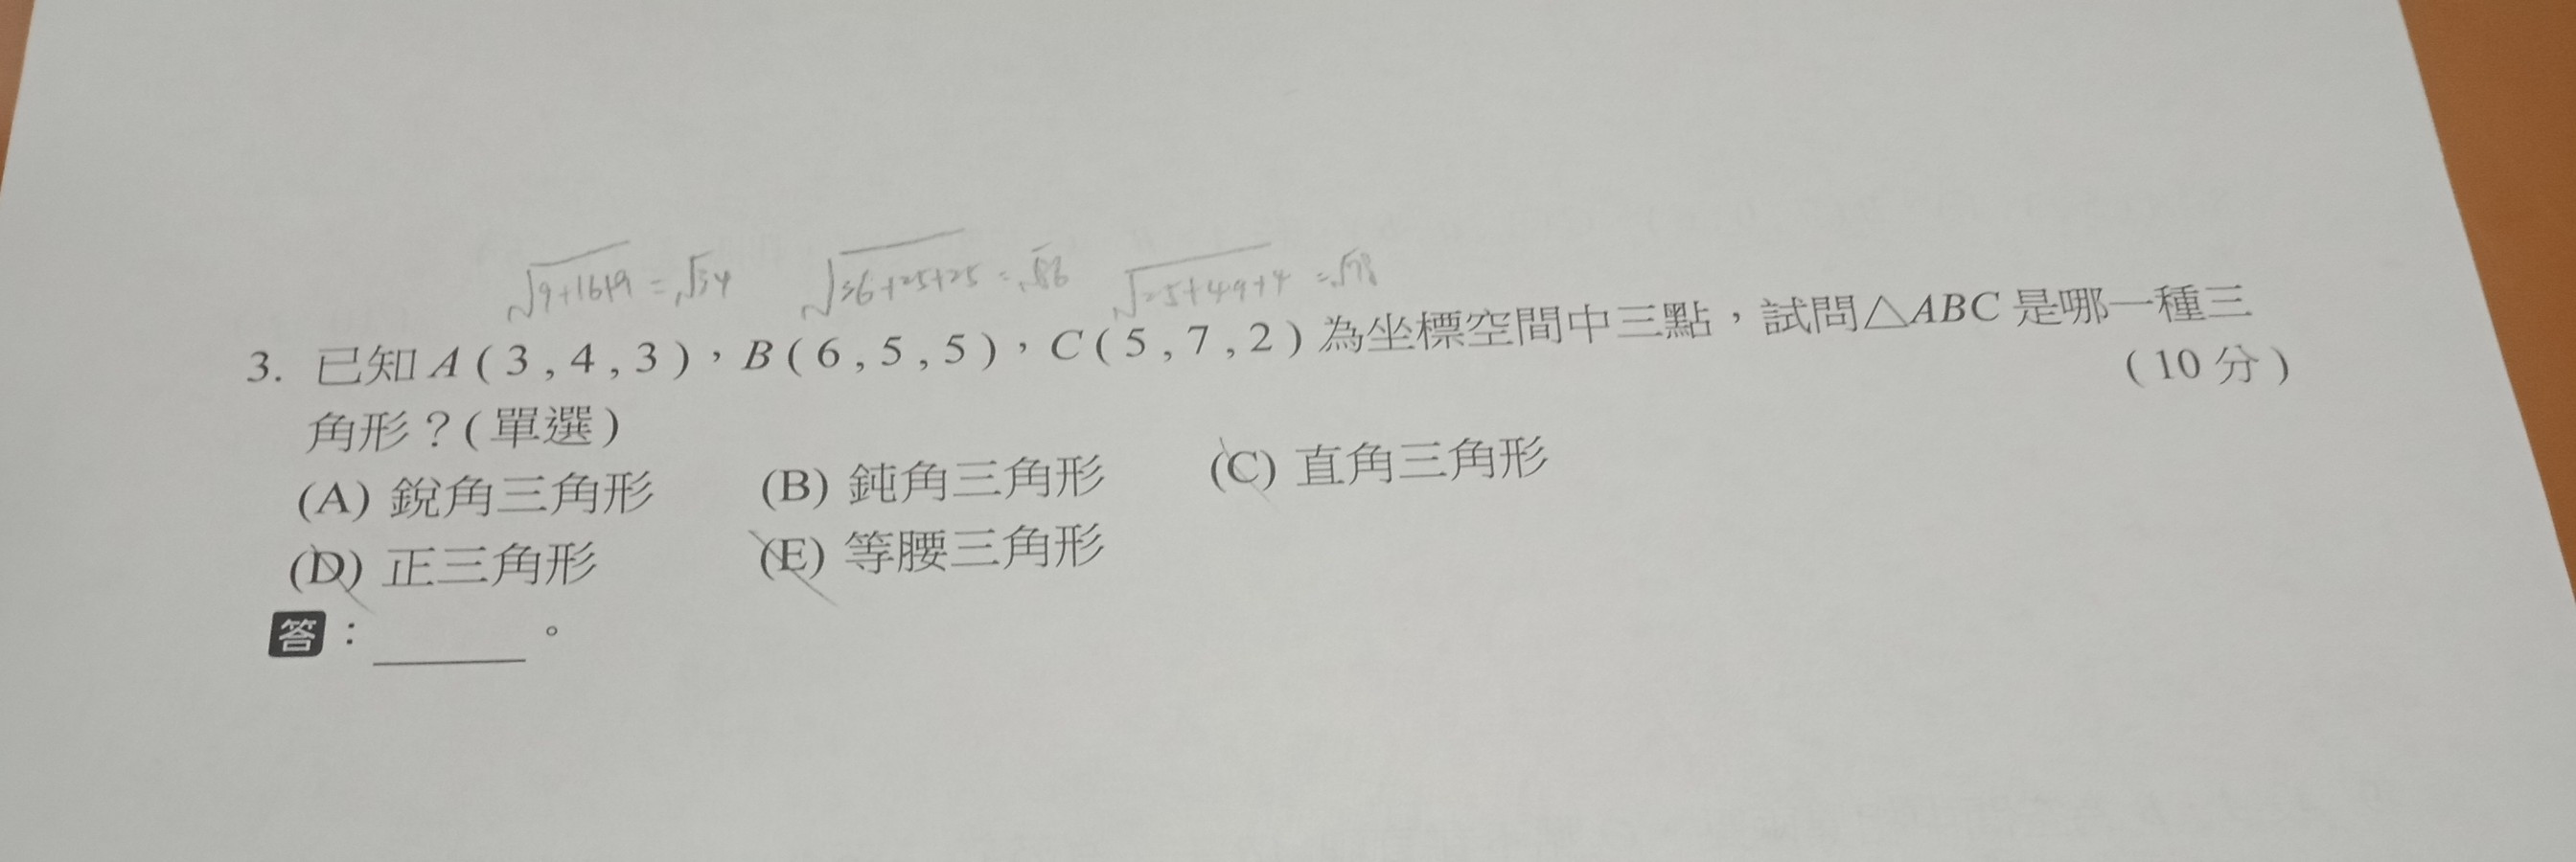 √9+16+9 = √34 √36+25+25 = √86 √25+49+4 = √78
3. 已知 A ( 3 , 4 , 3 ) , B ( 6 , 5 , 5 ) , C ( 5 , 7 , 2 ) 為坐標空間中三點,試問△ABC 是哪一種三
角形?( 單選 ) ( 10 分 )
(A) 銳角三角形 (B) 鈍角三角形 (C) 直角三角形
(D) 正三角形 (E) 等腰三角形
答:______。